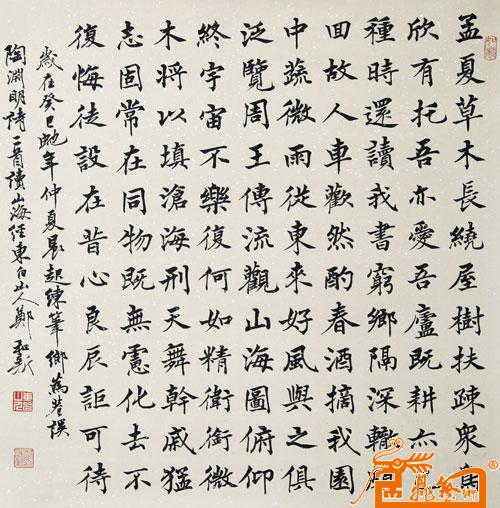 孟夏草木長繞屋樹扶疎衆鳥
欣有托吾亦愛吾廬既耕亦
種時還讀我書窮鄉隔深轍頗
回故人車歡然酌春酒摘我園
中蔬微雨從東來好風與之俱
泛覽周王傳流觀山海圖俯仰
終宇宙不樂復何如精衛銜微
木將以填滄海刑天舞幹戚猛
志固常在同物既無慮化去不
復悔徒設在昔心良辰詎可待
歲在癸巳虵年仲夏晨起練筆
陶淵明詩二首讀山海經東伯山人鄭和新